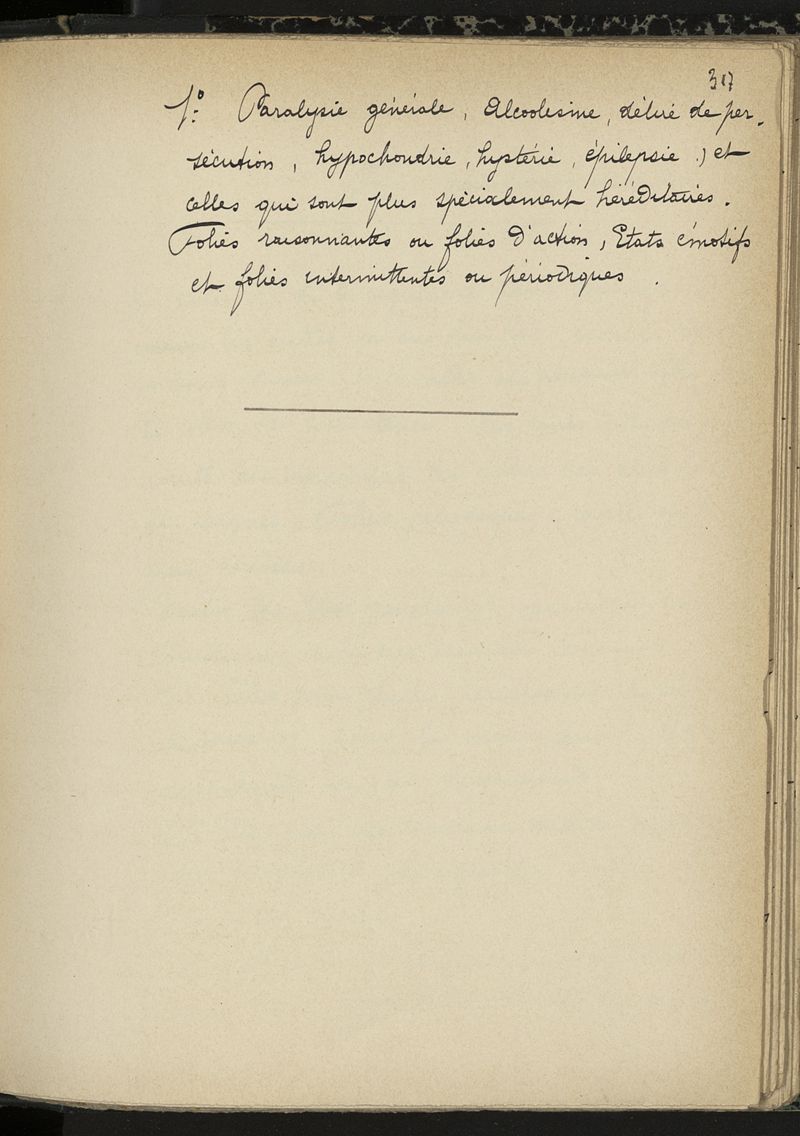 317
1º: Paralysie générale, Alcoolisme, délire de per-
sécution, hypochondrie, hystérie, épilepsie.) et
celles qui sont plus spécialement héréditaires.
Folies raisonnantes ou folies d'action, Etats émotifs
et folies intermittentes ou périodiques.